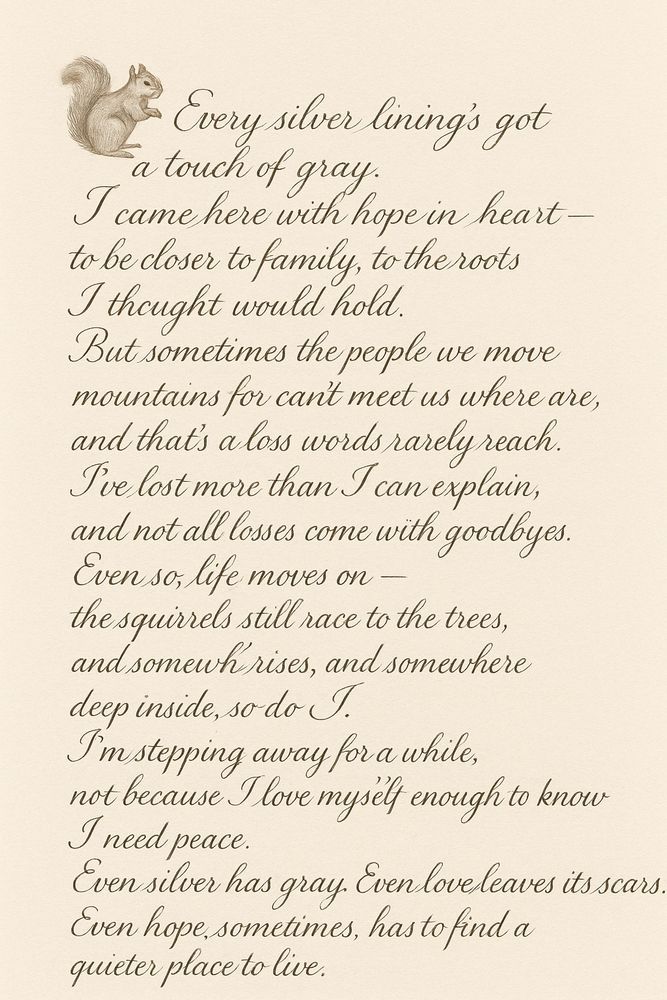 Every silver lining's got
a touch of gray.
I came here with hope in heart —
to be closer to family, to the roots
I thcught would hold.
But sometimes the people we move
mountains for can't meet us where are,
and that's a loss words rarely reach.
I've lost more than I can explain,
and not all losses come with goodbyes.
Even so, life moves on —
the squirrels still race to the trees,
and somewh' rises, and somewhere
deep inside, so do I.
I'm stepping away for a while,
not because I love myself enough to know
I need peace.
Even silver has gray. Even love leaves its scars.
Even hope, sometimes, has to find a
quieter place to live.